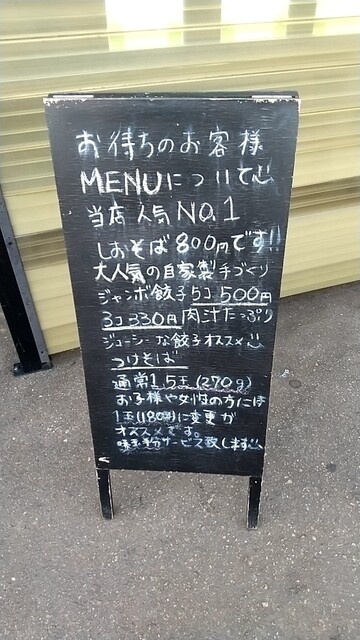 お待ちのお客様
MENUについて
当店人気NO.1
しおそば800円です!!
大人気の自家製手づくり
ジャンボ餃子5コ500円
3コ330円肉汁たっぷり
ジューシーな餃子オススメ
つけそば
通常1.5玉(270g)
お子様や女性の方には
1玉(180g)に変更が
オススメです。
サービス致します